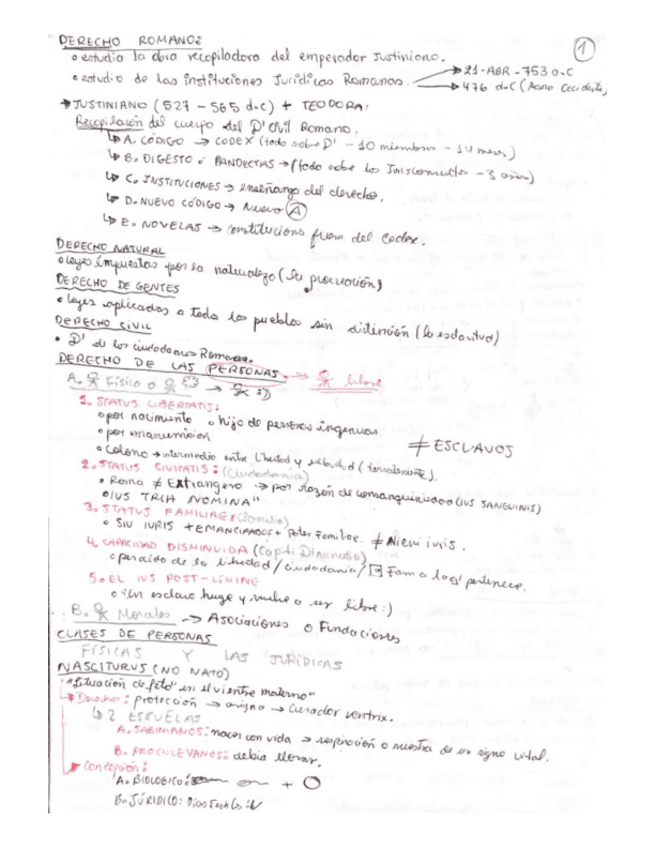 1
DERECHO ROMANO:
• estudia la obra recopiladora del emperador Justiniano.
• estudio de las instituciones Jurídicas Romanas. → 21-ABR-753 a.C
→ 476 d.C (
→ JUSTINIANO (527 - 565 d.C) + TEODORA:
Recopilación del cuerpo del D' Civil Romano.
↳ A. CÓDIGO → CODEX (todo sobre D' - 10 miembros - 14 meses)
↳ B. DIGESTO o PANDECTAS → (todo sobre los Jurisconsultos - 3 años)
↳ C. INSTITUCIONES → enseñanza del derecho.
↳ D. NUEVO CÓDIGO → Nuevo A
↳ E. NOVELAS → constitucions fuera del Codex.
DERECHO NATURAL
• leyes impuestas por la naturaleza (la procreación)
DERECHO DE GENTES
• leyes aplicados a todo los pueblos sin distinción (la esclavitud)
DERECHO CIVIL
• D' de los ciudadanos Romanos.
DERECHO DE LAS PERSONAS → libre
A. Físico o →
1. STATUS LIBERTATIS:
• por nacimiento • hijo de personas ingenuas
• por manumisión
≠ ESCLAVOS
• Colono → intermedio entre libertad y esclavitud (
2. STATUS CIVITATIS: (Ciudadanía)
• Roma ≠ Extrangero → por razón de consanguinidad (IUS SANGUINIS)
• IUS TRIA NOMINA"
3. STATUS FAMILIAE: (familia)
• SIU IURIS + EMANCIPADOS + Pater Familiae. ≠ Alieni iuris.
4. CAPACIDAD DISMINUIDA (Capiti Diminutio)
• perdida de la libertad / ciudadania /
5. EL IUS POST-LIMINE
• un esclavo huye y vuelve a ser libre :)
B. Morales → Asociaciones o Fundaciones
CLASES DE PERSONAS
FÍSICAS Y LAS JURÍDICAS
NASCITURUS (NO NATO)
"Situación de feto en el vientre materno"
Derecho: protección → asigna → Curador ventrix.
↳ 2 ESCUELAS
A. SABINIANOS: nacer con vida → respiración o muestra de un signo vital.
B. PROCULEYANOS: debía llorar.
Concepción:
A. BIOLOGICO: + O
B. JÚRIDICO: